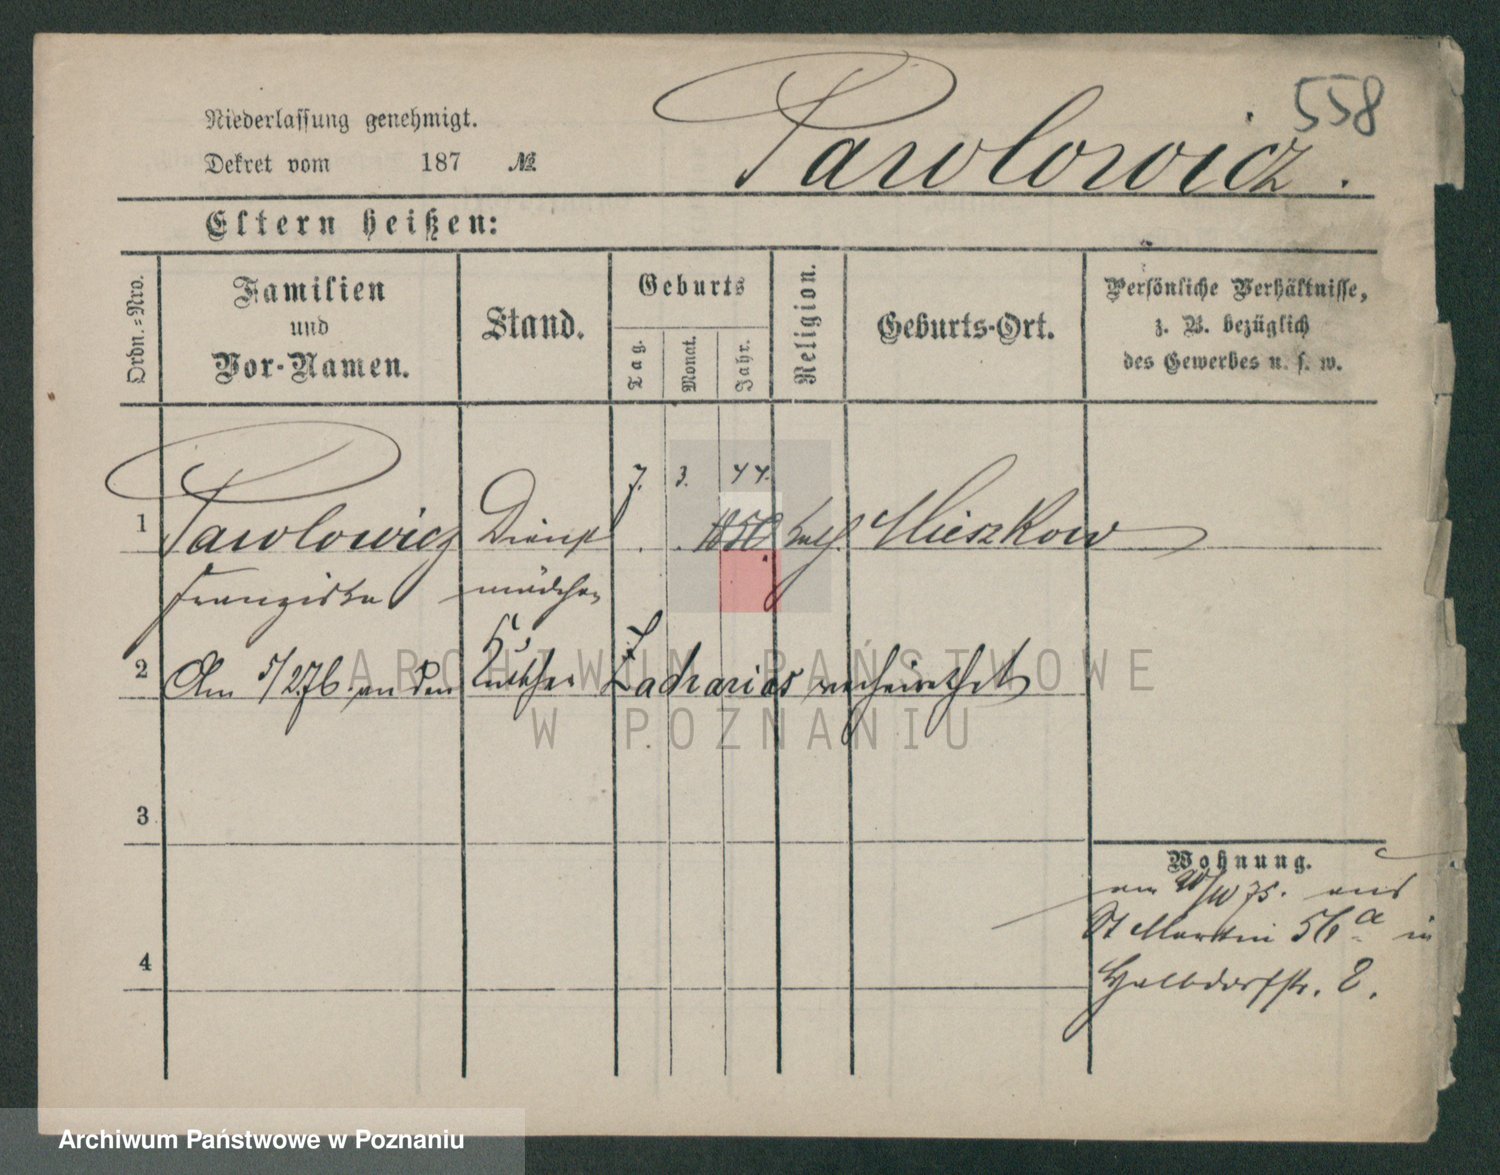 558
Niederlassung genehmigt.
Pawlowicz.
Dekret vom 187 №
Eltern heißen:
Ordn.=Nro.
Familien
und
Vor-Namen.
Stand.
Geburts
Tag.
Monat.
Jahr.
Religion.
Geburts-Ort.
Persönliche Verhältnisse,
z. B. bezüglich
des Gewerbes u. s. w.
7. 3. 44.
1 Pawlowicz Dienst 1850 kath. Mieszkow
Franziska mädchen
2 Am 5/2 76 an den Kutscher Zacharias verheirathet
3
Wohnung.
am /IV 75. aus
St Martin 56 a in
4 Halbdorfstr. 2.
ARCHIWUM PAŃSTWOWE
W POZNANIU
Archiwum Państwowe w Poznaniu